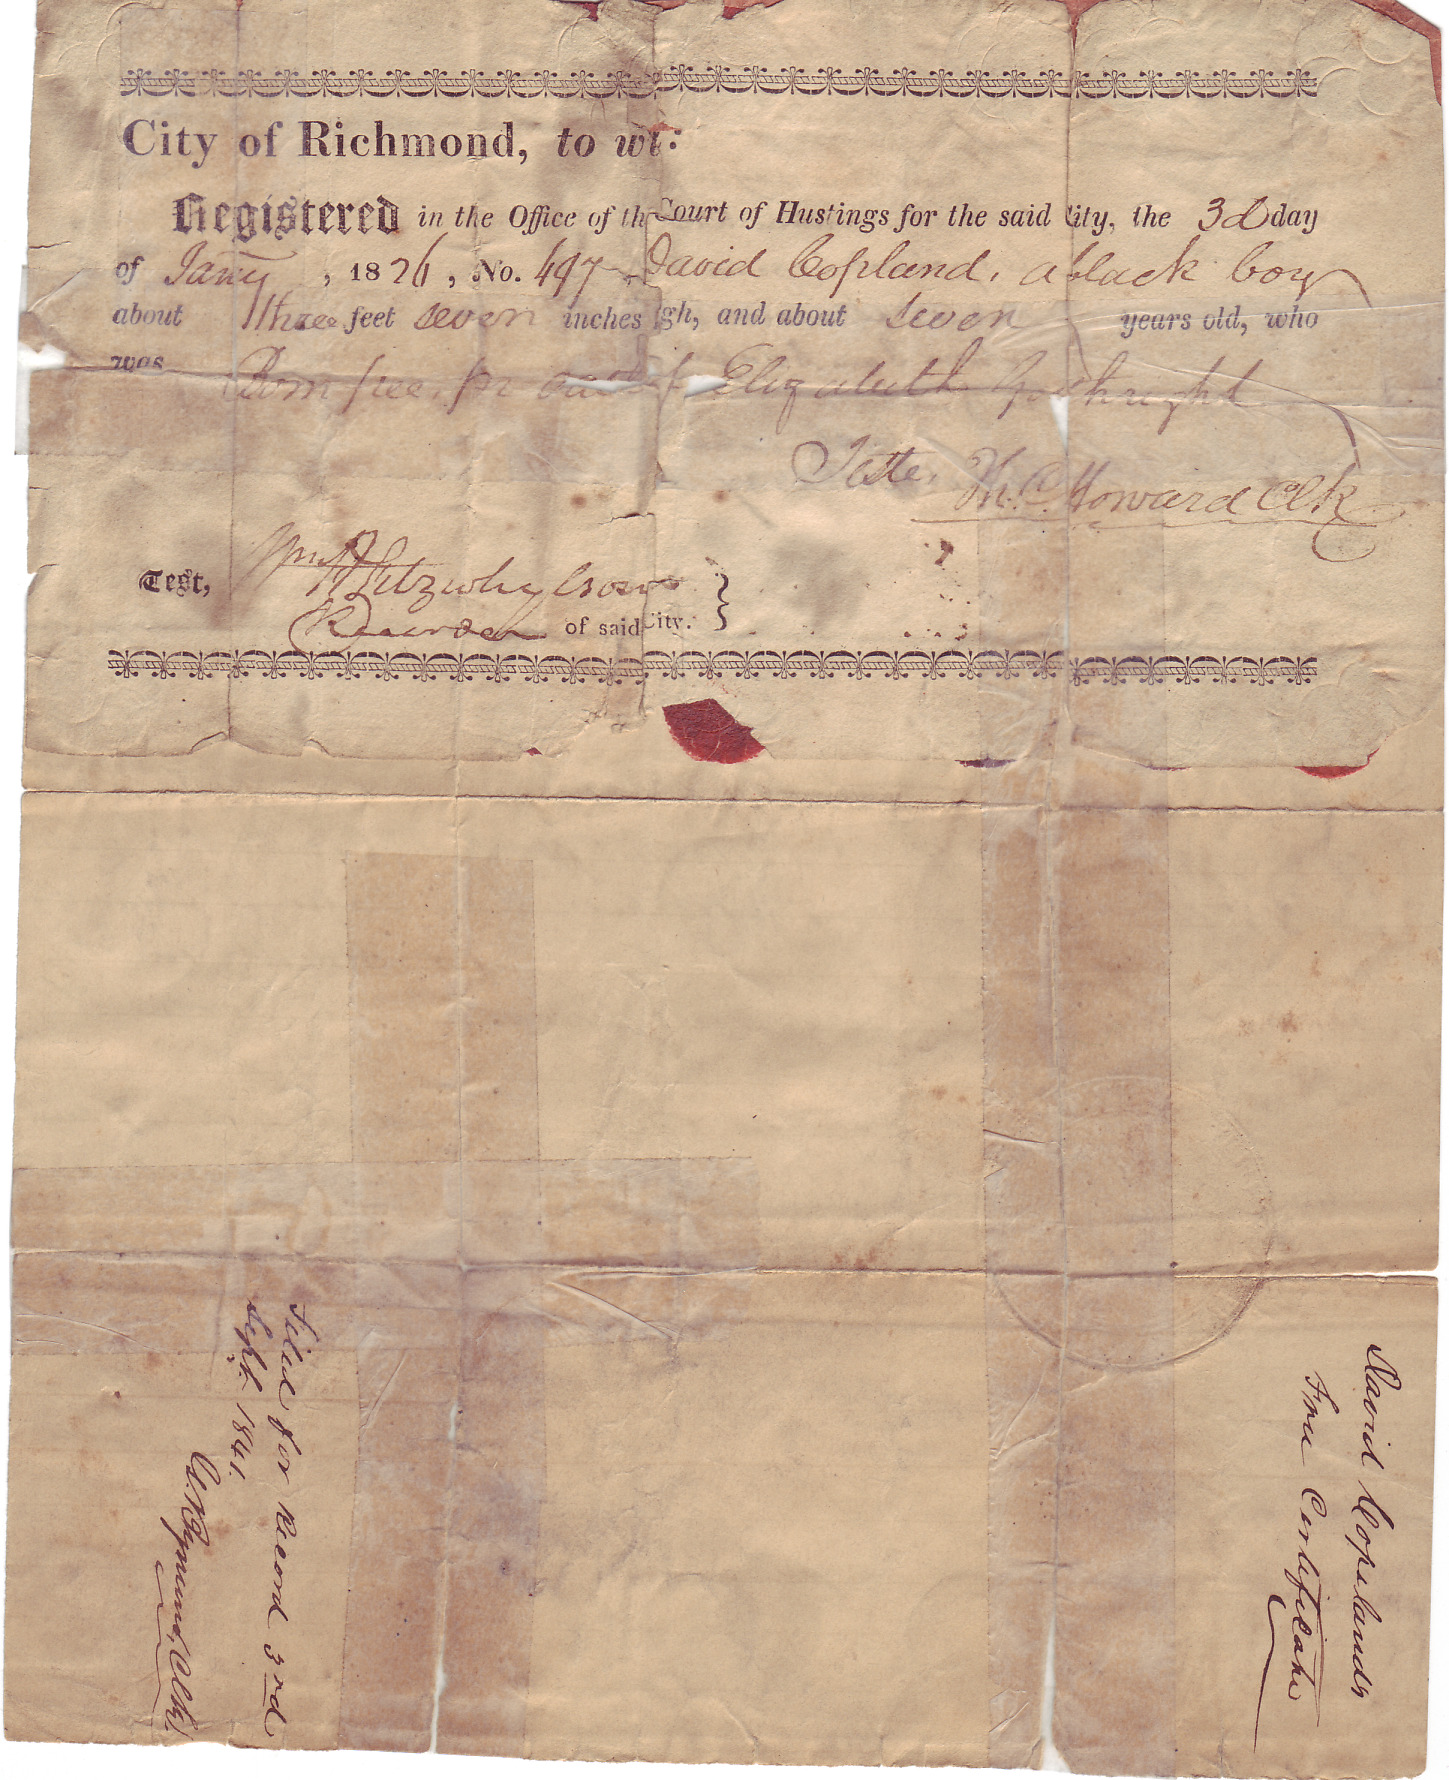 City of Richmond, to wi:
Registered in the Office of th Court of Hustings for the said City, the 3d day
of Jany , 1826, No. 497 David Copland, a black boy
about three feet seven inches gh, and about seven years old, who
was Born free, pr oath of Elizabeth
Teste, Th. C. Howard Clk
Test, Wm H Fitzwhylsonn
Recorder of said City.
David Copelands
Free Certificate
Filed for Record 3rd
Sept. 1841.
Clk.